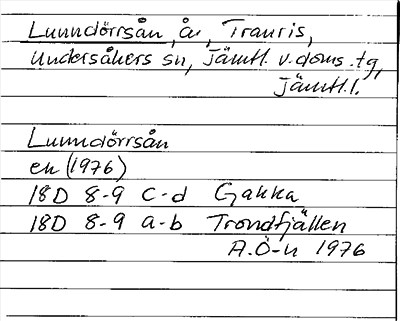 Lunndörrsån, å, Tranris,
Undersåkers sn, Jämtl. v. doms. tg,
Jämtl. l.
Lunndörrsån
ek (1976)
18D 8-9 c-d Gakka
18D 8-9 a-b Trondfjällen
A.Ö-n 1976